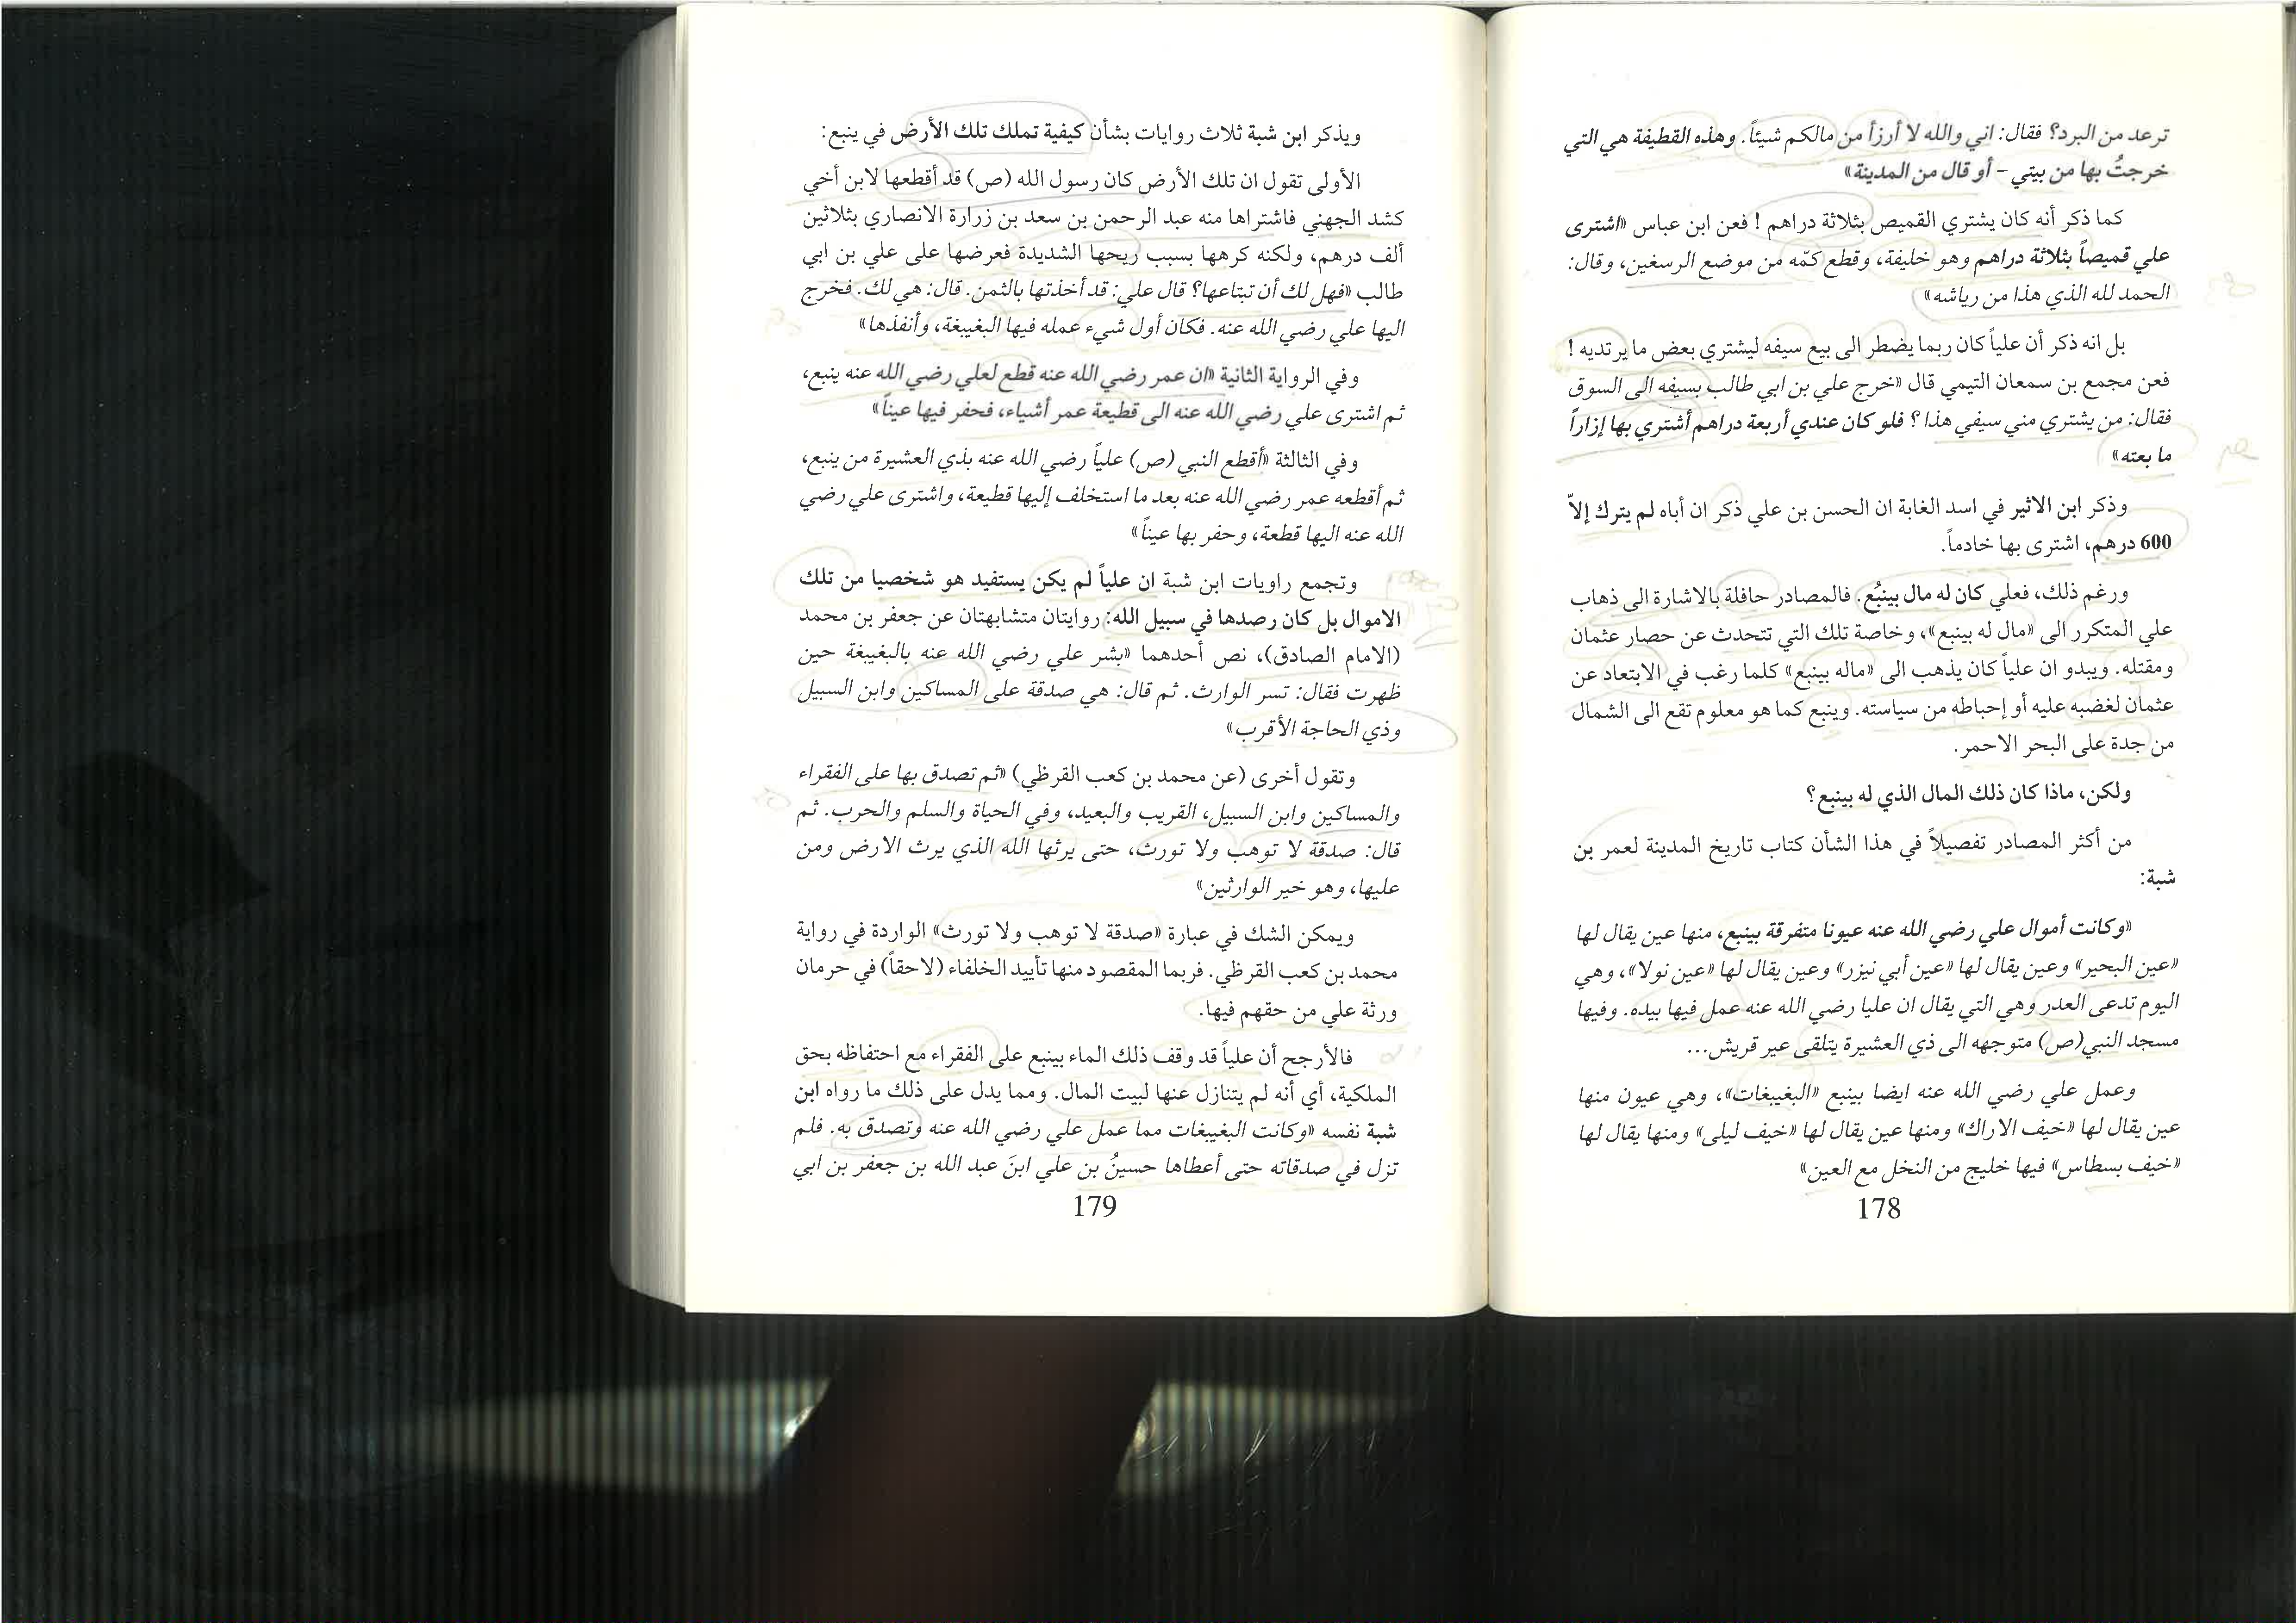 ترعد من البرد؟ فقال: اني والله لا أرزأ من مالكم شيئاً. وهذه القطيفة هي التي
خرجتُ بها من بيتي – أو قال من المدينة»
كما ذكر أنه كان يشتري القميص بثلاثة دراهم ! فعن ابن عباس «اشترى
علي قميصاً بثلاثة دراهم وهو خليفة، وقطع كمّه من موضع الرسغين، وقال:
الحمد لله الذي هذا من رياشه»
بل انه ذكر أن علياً كان ربما يضطر الى بيع سيفه ليشتري بعض ما يرتديه !
فعن مجمع بن سمعان التيمي قال «خرج علي بن ابي طالب بسيفه الى السوق
فقال: من يشتري مني سيفي هذا ؟ فلو كان عندي أربعة دراهم أشتري بها إزاراً
ما بعته»
وذكر ابن الاثير في اسد الغابة ان الحسن بن علي ذكر ان أباه لم يترك إلاّ
600 درهم، اشترى بها خادماً.
ورغم ذلك، فعلي كان له مال بينبُع. فالمصادر حافلة بالاشارة الى ذهاب
علي المتكرر الى «مال له بينبع»، وخاصة تلك التي تتحدث عن حصار عثمان
ومقتله. ويبدو ان علياً كان يذهب الى «ماله بينبع» كلما رغب في الابتعاد عن
عثمان لغضبه عليه أو إحباطه من سياسته. وينبع كما هو معلوم تقع الى الشمال
من جدة على البحر الاحمر.
ولكن، ماذا كان ذلك المال الذي له بينبع؟
من أكثر المصادر تفصيلاً في هذا الشأن كتاب تاريخ المدينة لعمر بن
شبة:
«وكانت أموال علي رضي الله عنه عيونا متفرقة بينبع، منها عين يقال لها
«عين البحير» وعين يقال لها «عين أبي نيزر» وعين يقال لها «عين نولا»، وهي
اليوم تدعى العدر وهي التي يقال ان عليا رضي الله عنه عمل فيها بيده. وفيها
مسجد النبي(ص) متوجهه الى ذي العشيرة يتلقى عير قريش...
وعمل علي رضي الله عنه ايضا بينبع «البغيبغات»، وهي عيون منها
عين يقال لها «خيف الاراك» ومنها عين يقال لها «خيف ليلى» ومنها يقال لها
«خيف بسطاس» فيها خليج من النخل مع العين»
178
ويذكر ابن شبة ثلاث روايات بشأن كيفية تملك تلك الأرض في ينبع:
الأولى تقول ان تلك الأرض كان رسول الله (ص) قد أقطعها لابن أخي
كشد الجهني فاشتراها منه عبد الرحمن بن سعد بن زرارة الانصاري بثلاثين
ألف درهم، ولكنه كرهها بسبب ريحها الشديدة فعرضها على علي بن ابي
طالب «فهل لك أن تبتاعها؟ قال علي: قد أخذتها بالثمن. قال: هي لك. فخرج
اليها علي رضي الله عنه. فكان أول شيء عمله فيها البغيبغة، وأنفذها»
وفي الرواية الثانية «ان عمر رضي الله عنه قطع لعلي رضي الله عنه ينبع،
ثم اشترى علي رضي الله عنه الى قطيعة عمر أشياء، فحفر فيها عيناً»
وفي الثالثة «أقطع النبي (ص) علياً رضي الله عنه بذي العشيرة من ينبع،
ثم أقطعه عمر رضي الله عنه بعد ما استخلف إليها قطيعة، واشترى علي رضي
الله عنه اليها قطعة، وحفر بها عيناً»
وتجمع راويات ابن شبة ان علياً لم يكن يستفيد هو شخصيا من تلك
الاموال بل كان رصدها في سبيل الله: روايتان متشابهتان عن جعفر بن محمد
(الامام الصادق)، نص أحدهما «بشر علي رضي الله عنه بالبغيبغة حين
ظهرت فقال: تسر الوارث. ثم قال: هي صدقة على المساكين وابن السبيل
وذي الحاجة الأقرب»
وتقول أخرى (عن محمد بن كعب القرظي) «ثم تصدق بها على الفقراء
والمساكين وابن السبيل، القريب والبعيد، وفي الحياة والسلم والحرب. ثم
قال: صدقة لا توهب ولا تورث، حتى يرثها الله الذي يرث الارض ومن
عليها، وهو خير الوارثين»
ويمكن الشك في عبارة «صدقة لا توهب ولا تورث» الواردة في رواية
محمد بن كعب القرظي. فربما المقصود منها تأييد الخلفاء (لاحقاً) في حرمان
ورثة علي من حقهم فيها.
فالأرجح أن علياً قد وقف ذلك الماء بينبع على الفقراء مع احتفاظه بحق
الملكية، أي أنه لم يتنازل عنها لبيت المال. ومما يدل على ذلك ما رواه ابن
شبة نفسه «وكانت البغيبغات مما عمل علي رضي الله عنه وتصدق به. فلم
تزل في صدقاته حتى أعطاها حسينُ بن علي ابنَ عبد الله بن جعفر بن ابي
179